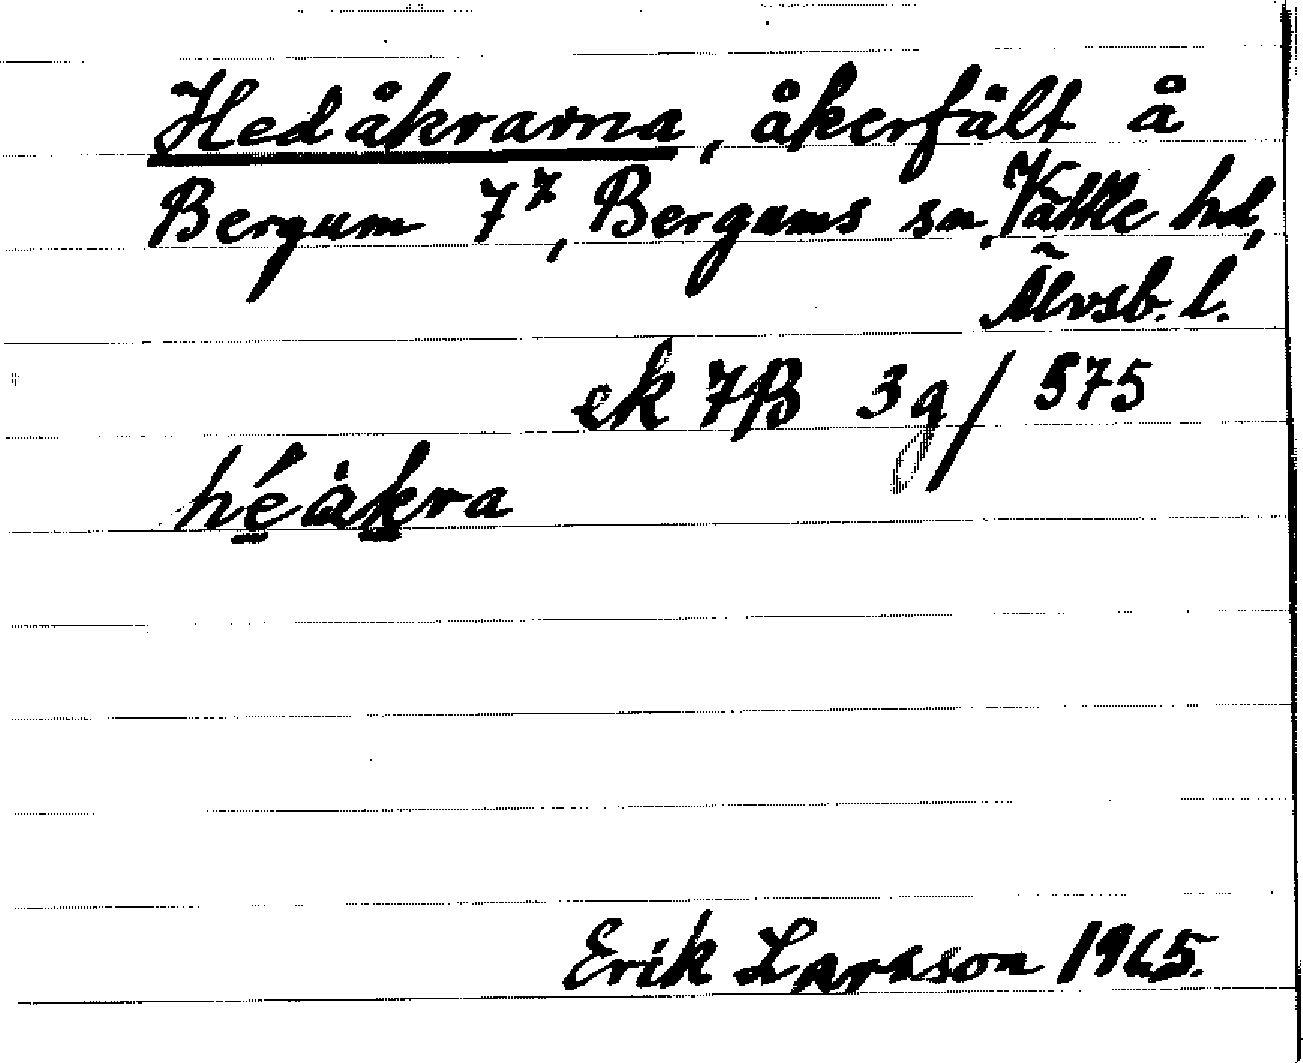 Hedåkrarna, åkerfält å
Bergum 7⁷, Bergums sn, Vättle hd,
Älvsb. l.
ek 7B 3g/ 575
héåkra
Erik Larsson 1965.